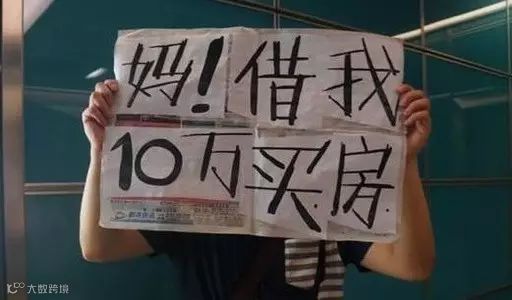 妈！借我
10万买房
大数跨境